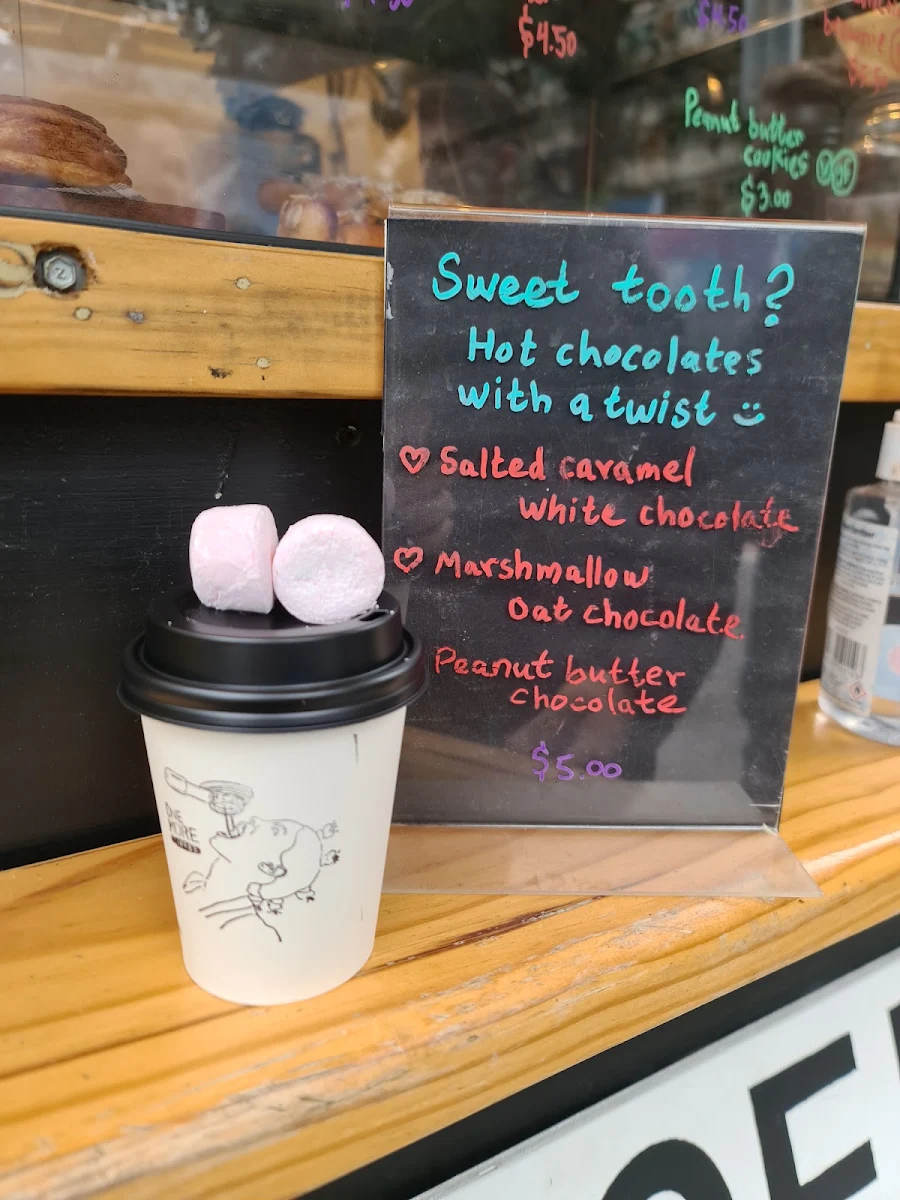 $4.50
$4.50
Peanut butter
cookies
$3.00
Sweet tooth?
Hot chocolates
with a twist
Salted caramel
White chocolate
Marshmallow
Oat chocolate
Peanut butter
chocolate
$5.00
Z